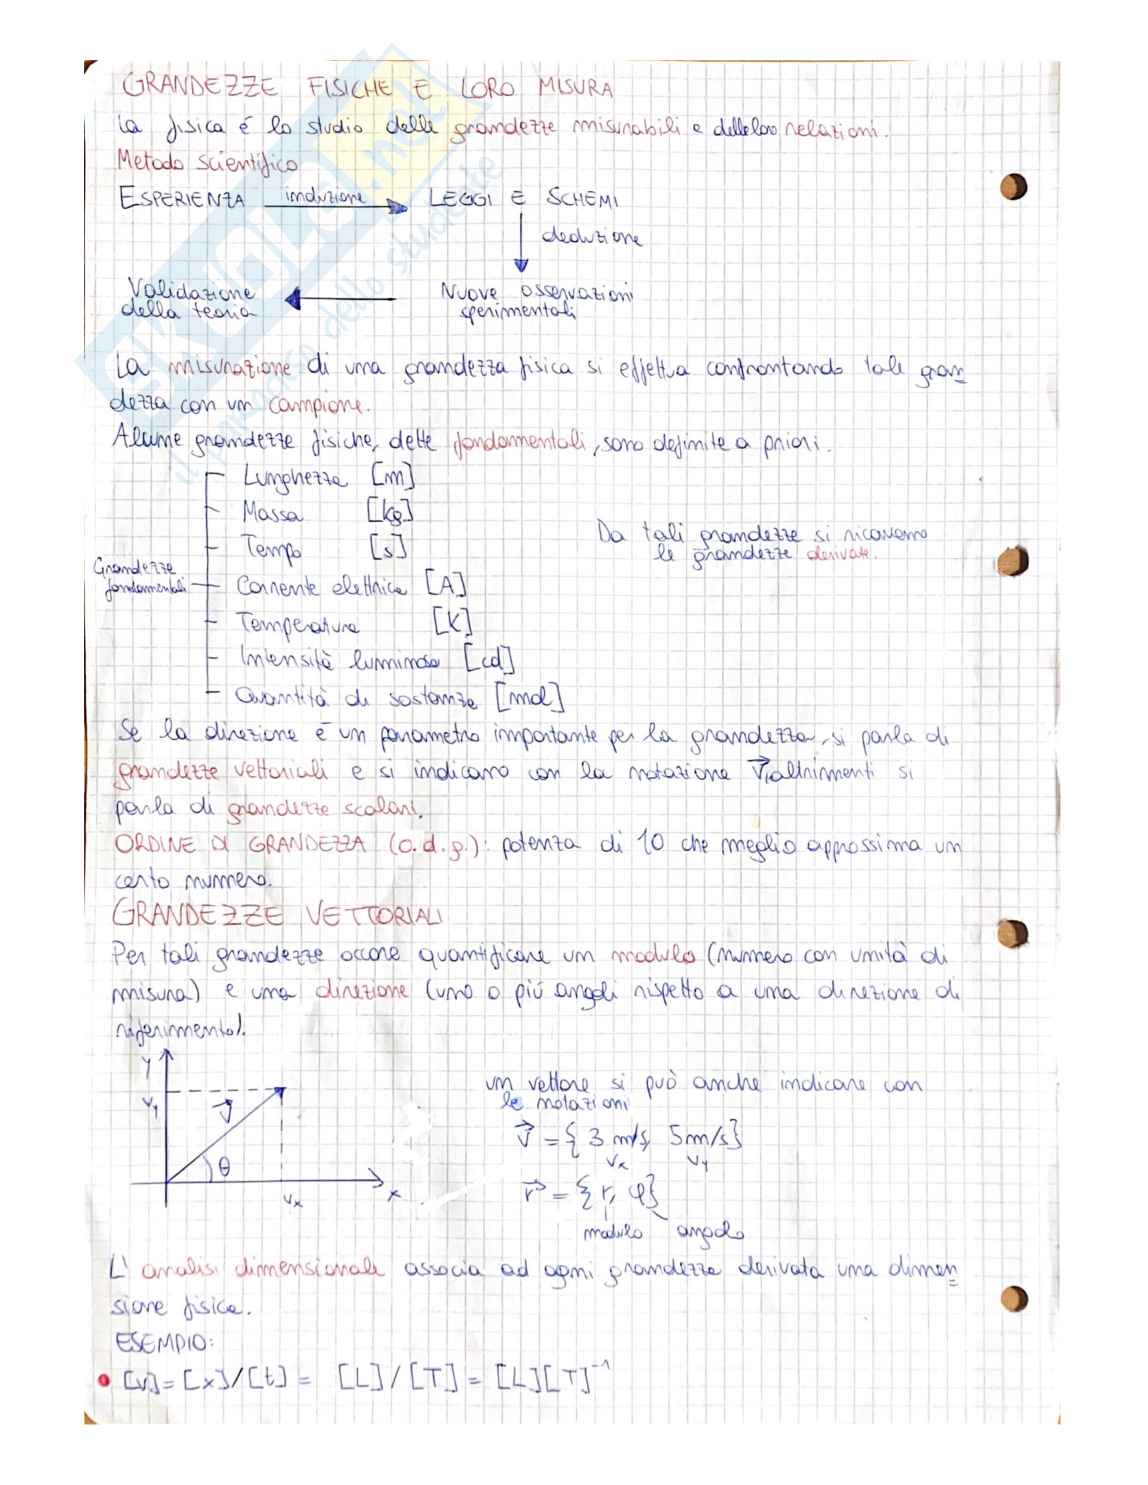 GRANDEZZE FISICHE E LORO MISURA
La fisica é lo studio delle grandezze misurabili e delle loro relazioni.
Metodo scientifico
ESPERIENZA induzione LEGGI E SCHEMI
deduzione
Validazione Nuove osservazioni
della teoria sperimentali
La misurazione di una grandezza fisica si effettua confrontando tale gran
dezza con un campione.
Alcune grandezze fisiche, dette fondamentali, sono definite a priori.
Lunghezza [m]
Massa [kg]
Da tali grandezze si ricavano
Tempo [s]
le grandezze derivate.
Grandezze
fondamentali
Corrente elettrica [A]
Temperatura [K]
Intensità luminosa [cd]
Quantità di sostanza [mol]
Se la direzione è un parametro importante per la grandezza, si parla di
grandezze vettoriali e si indicano con la notazione V⃗, altrimenti si
parla di grandezze scalari.
ORDINE DI GRANDEZZA (o.d.g.): potenza di 10 che meglio approssima un
certo numero.
GRANDEZZE VETTORIALI
Per tali grandezze occore quantificare un modulo (numero con unità di
misura) e una direzione (uno o piú angoli rispetto a una direzione di
riferimento).
y
un vettore si può anche indicare con
le notazioni
Vy
v⃗
v⃗ = { 3 m/s, 5m/s}
Vx Vy
θ
r⃗ = { r, φ}
Vx x
modulo angolo
L' analisi dimensionale associa ad ogni grandezza derivata una dimen
sione fisica.
ESEMPIO:
• [v] = [x]/[t] = [L]/[T] = [L][T]⁻¹
SKUOLA.net
il paradiso dello studente